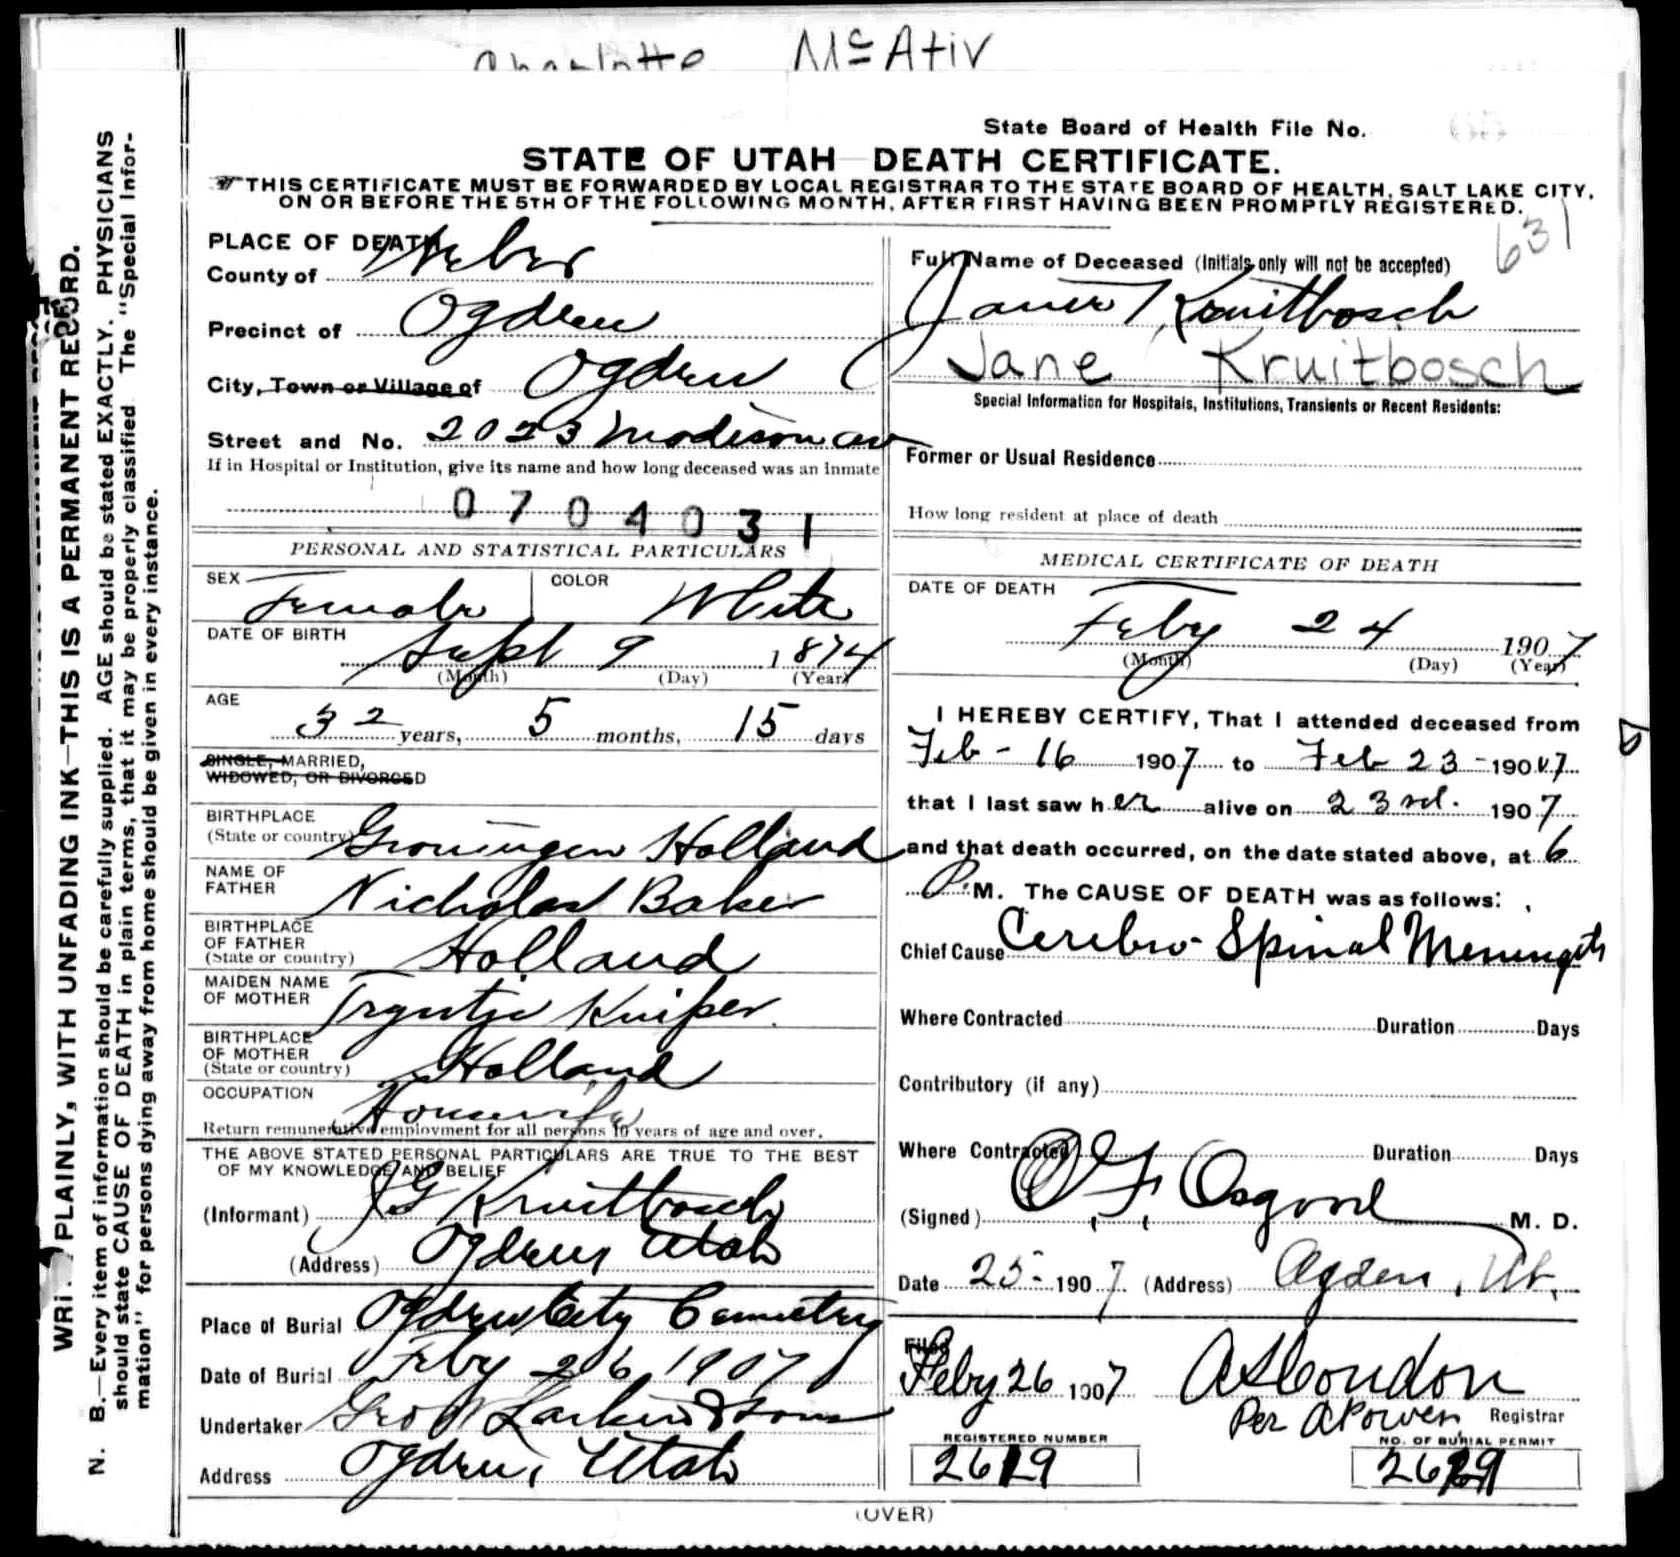 Charlotte McAtiv
State Board of Health File No.
STATE OF UTAH DEATH CERTIFICATE.
THIS CERTIFICATE MUST BE FORWARDED BY LOCAL REGISTRAR TO THE STATE BOARD OF HEALTH, SALT LAKE CITY,
ON OR BEFORE THE 5TH OF THE FOLLOWING MONTH, AFTER FIRST HAVING BEEN PROMPTLY REGISTERED.
631
PLACE OF DEATH
County of Weber
Precinct of Ogden
City, Town or Village of Ogden
Street and No. 2023 Madison av
If in Hospital or Institution, give its name and how long deceased was an inmate
0704031
PERSONAL AND STATISTICAL PARTICULARS
SEX Female COLOR White
DATE OF BIRTH
Sept 9 1874
(Month) (Day) (Year)
AGE
32 years, 5 months, 15 days
SINGLE, MARRIED,
WIDOWED, OR DIVORCED
BIRTHPLACE
(State or country) Groningen Holland
NAME OF
FATHER Nicholas Baker
BIRTHPLACE
OF FATHER
(State or country) Holland
MAIDEN NAME
OF MOTHER Tryntje Kuiper
BIRTHPLACE
OF MOTHER
(State or country) Holland
OCCUPATION Housewife
Return remunerative employment for all persons 10 years of age and over.
THE ABOVE STATED PERSONAL PARTICULARS ARE TRUE TO THE BEST
OF MY KNOWLEDGE AND BELIEF
(Informant) J G Kruitbosch
(Address) Ogden Utah
Place of Burial Ogden City Cemetery
Date of Burial Feby 26 1907
Undertaker Geo W Larkin & Sons
Address Ogden, Utah
Full Name of Deceased (Initials only will not be accepted)
Kruitbosch
Jane Kruitbosch
Special Information for Hospitals, Institutions, Transients or Recent Residents:
Former or Usual Residence
How long resident at place of death
MEDICAL CERTIFICATE OF DEATH
DATE OF DEATH
Feby 24 1907
(Month) (Day) (Year)
I HEREBY CERTIFY, That I attended deceased from
Feb - 16 1907 to Feb 23 - 1907
that I last saw her alive on 23rd. 1907
and that death occurred, on the date stated above, at 6
P M. The CAUSE OF DEATH was as follows:
Chief Cause Cerebro-Spinal Meningitis
Where Contracted Duration Days
Contributory (if any)
Where Contracted Duration Days
(Signed) Osgood M. D.
Date 25- 1907 (Address) Ogden, Ut.
Filed
Feby 26 1907 Condon
Per Registrar
REGISTERED NUMBER NO. OF BURIAL PERMIT
2619
(OVER)
WRITE PLAINLY, WITH UNFADING INK—THIS IS A PERMANENT RECORD.
N. B.—Every item of information should be carefully supplied. AGE should be stated EXACTLY. PHYSICIANS
should state CAUSE OF DEATH in plain terms, that it may be properly classified The "Special Infor-
mation" for persons dying away from home should be given in every instance.